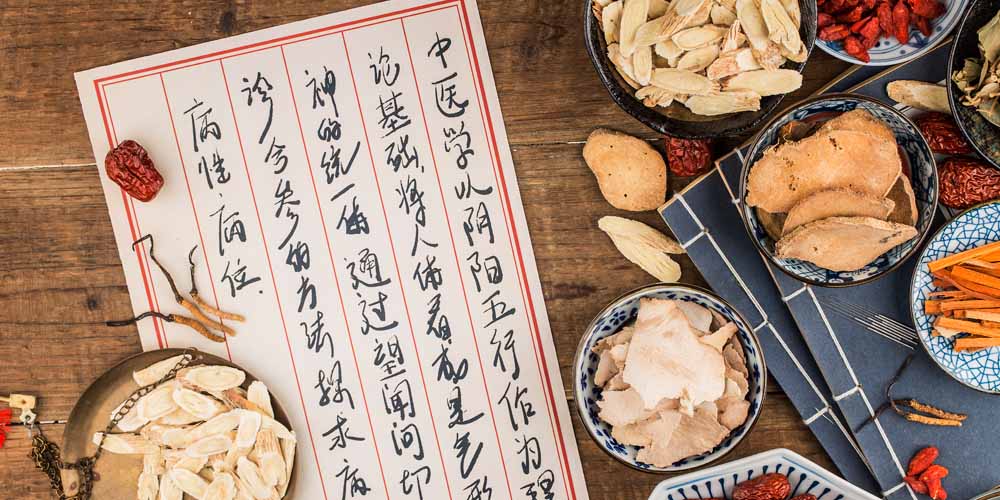 中医学以阴阳五行作为理
论基础,将人体看成是气形
神的统一体通过望闻问切
诊合参的方法探求病
病性病位.